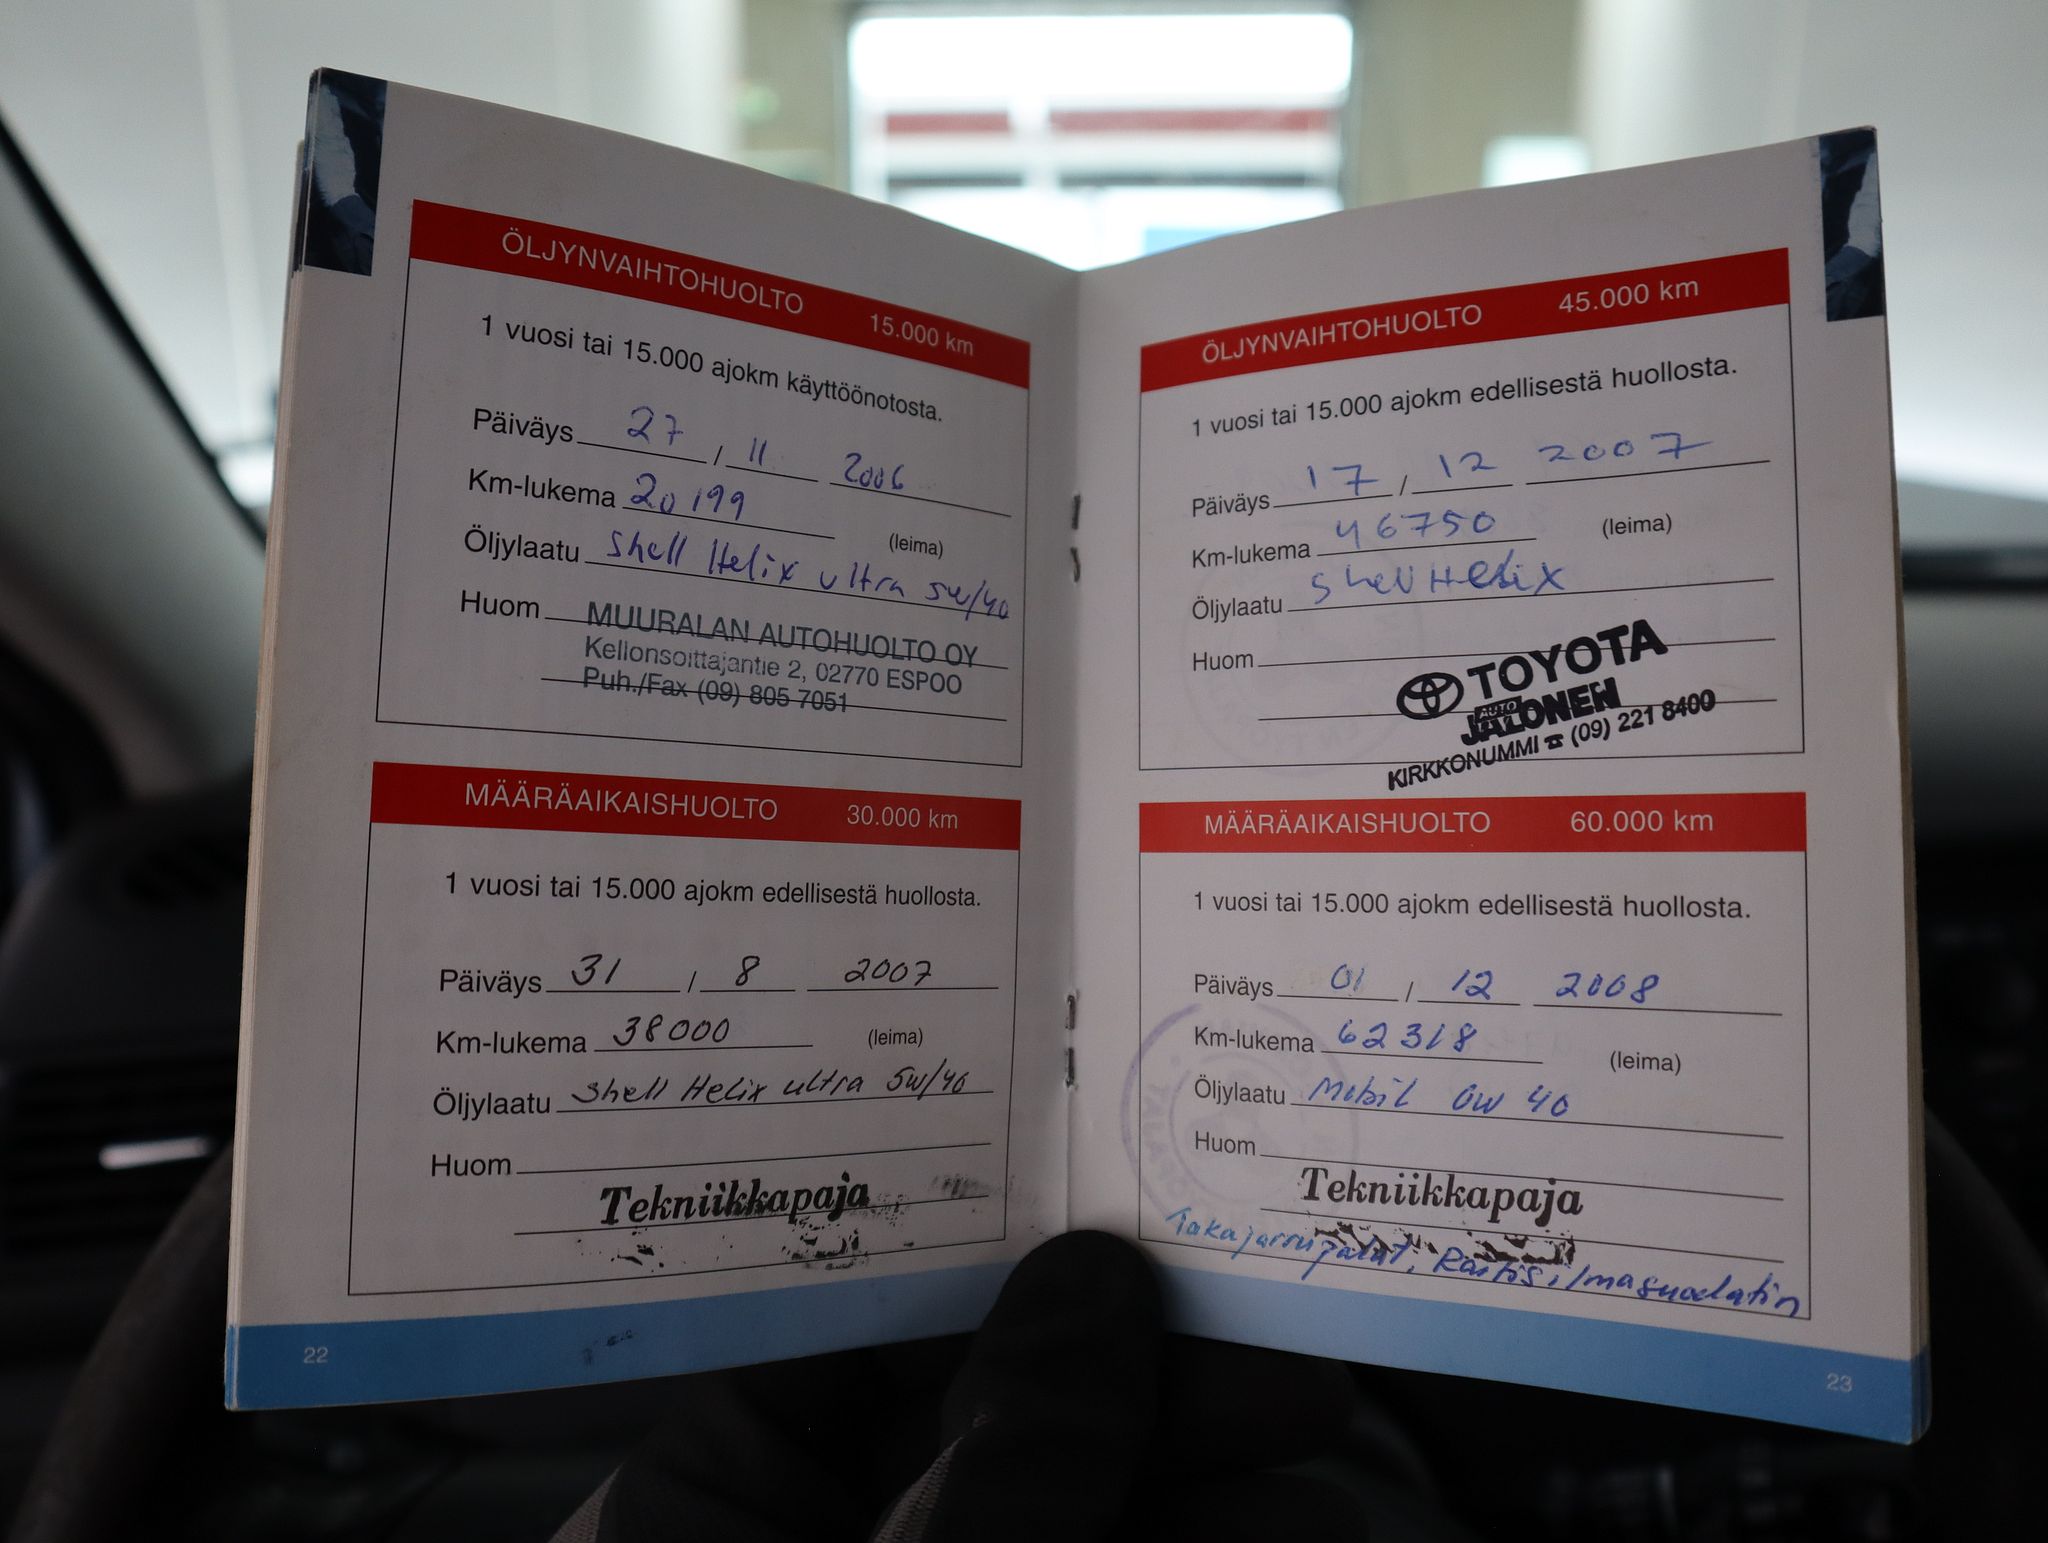 ÖLJYNVAIHTOHUOLTO 15.000 km
1 vuosi tai 15.000 ajokm käyttöönotosta.
Päiväys 27 / 11 2006
Km-lukema 20199 (leima)
Öljylaatu Shell Helix ultra 5w/40
Huom
MUURALAN AUTOHUOLTO OY
Kellonsoittajantie 2, 02770 ESPOO
Puh./Fax (09) 805 7051
MÄÄRÄAIKAISHUOLTO 30.000 km
1 vuosi tai 15.000 ajokm edellisestä huollosta.
Päiväys 31 / 8 2007
Km-lukema 38000 (leima)
Öljylaatu Shell Helix ultra 5w/40
Huom
Tekniikkapaja
22
ÖLJYNVAIHTOHUOLTO 45.000 km
1 vuosi tai 15.000 ajokm edellisestä huollosta.
Päiväys 17 / 12 2007
Km-lukema 46750 (leima)
Öljylaatu Shell Helix
Huom
TOYOTA
AUTO
JALONEN
KIRKKONUMMI ☎ (09) 221 8400
MÄÄRÄAIKAISHUOLTO 60.000 km
1 vuosi tai 15.000 ajokm edellisestä huollosta.
Päiväys 01 / 12 2008
Km-lukema 62318 (leima)
Öljylaatu Mobil 0w 40
Huom
Tekniikkapaja
Takajarrupalat, Raitis ilmasuodatin
23